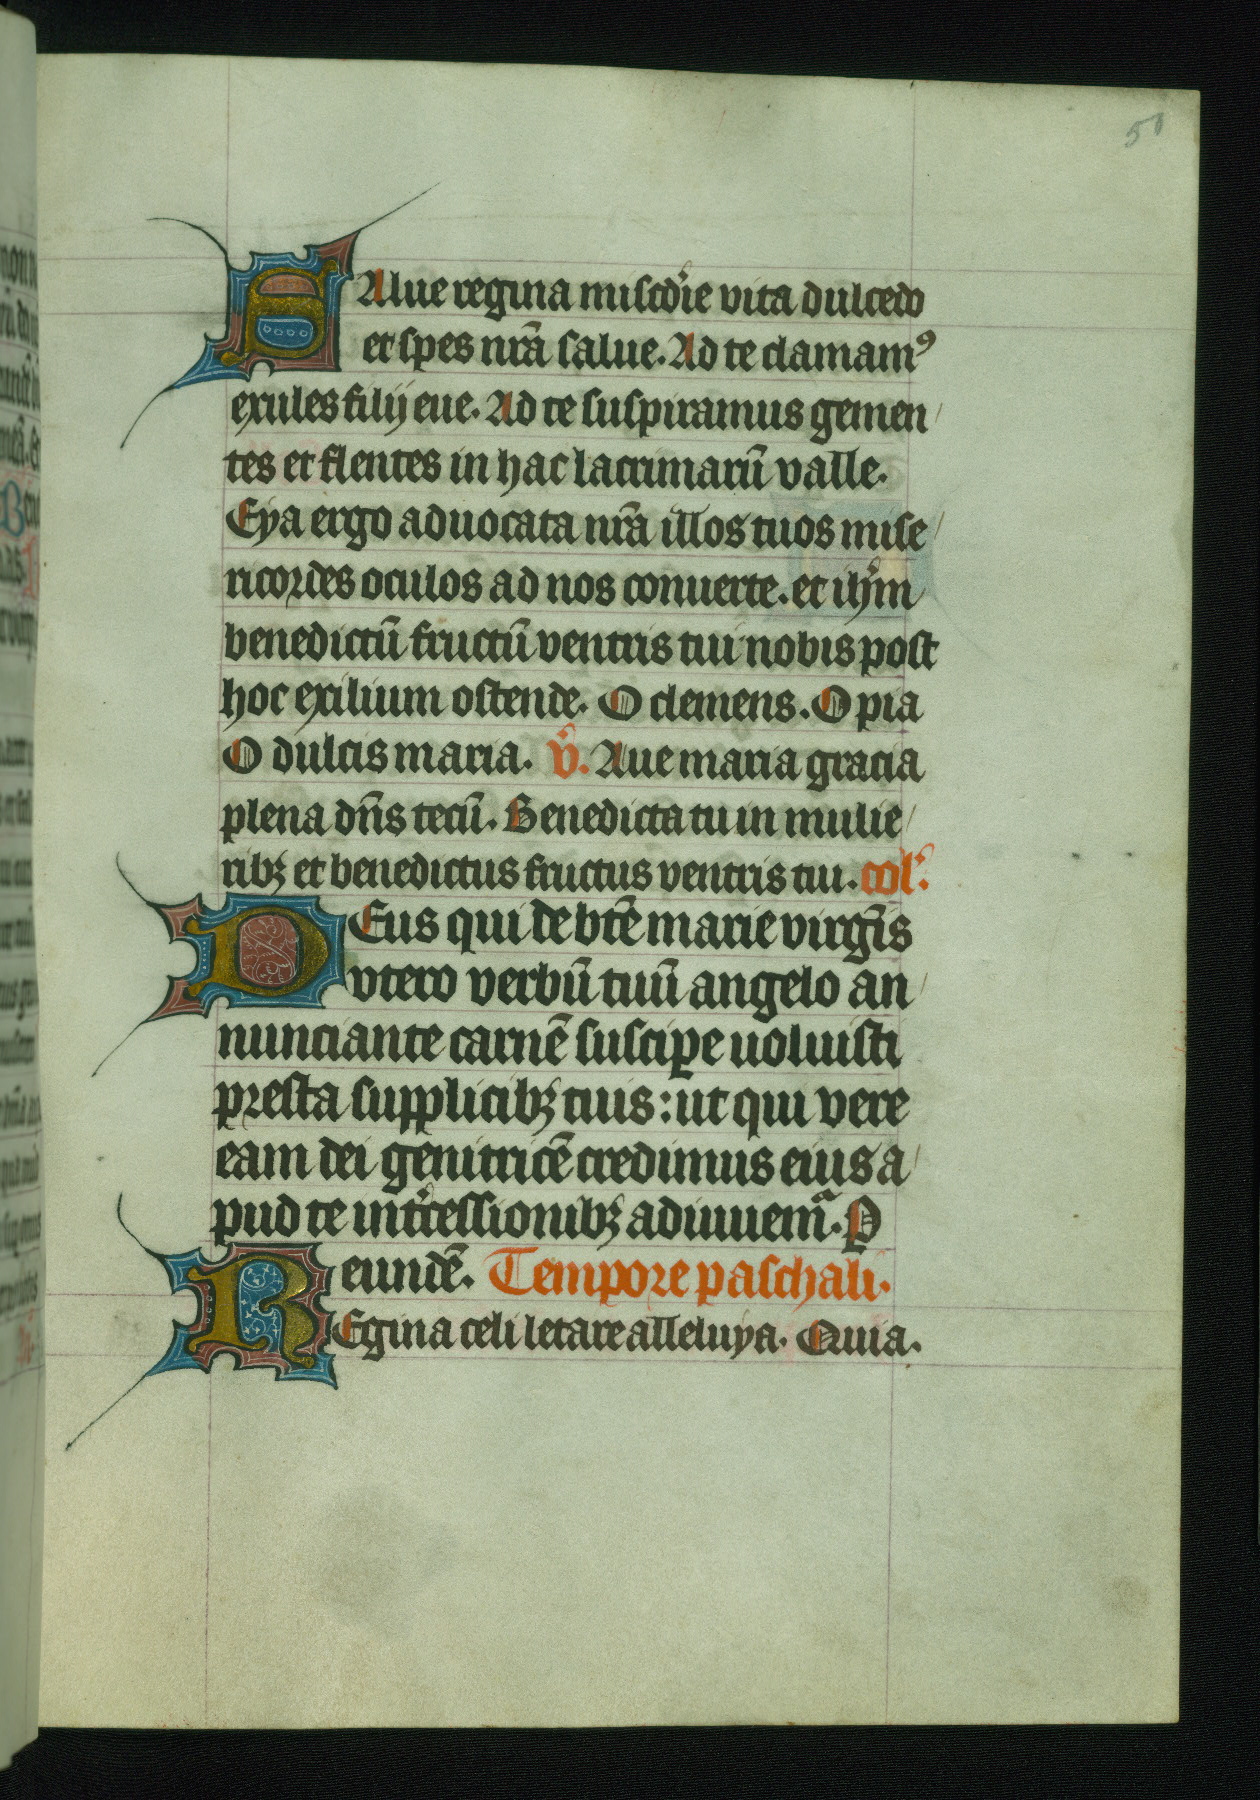 50
SAlue regina misc̄die vita dulcedo
et spes nr̄a salue. Ad te clamamꝰ
exules filij eue. Ad te suspiramus gemen/
tes et flentes in hac lacrimarū valle.
Eya ergo aduocata nr̄a illos tuos mise/
ricordes oculos ad nos conuerte. et ih̄m
benedictū fructū ventris tui nobis post
hoc exilium ostende. O clemens. O pia
O dulcis maria. v̄. Aue maria gracia
plena dn̄s tecū. Benedicta tu in mulie/
ribꝫ et benedictus fructus ventris tui. col'.
DEus qui de bt̄e marie virgīs
vtero verbū tuū angelo an/
nunciante carnē suscipe uoluisti
presta supplicibꝫ tuis: ut qui vere
eam dei genitricē credimus eius a/
pud te int̄cessionibꝫ adiuuemͣ. P
eundē. Tempore paschali.
REgina celi letare alleluya. Quia.